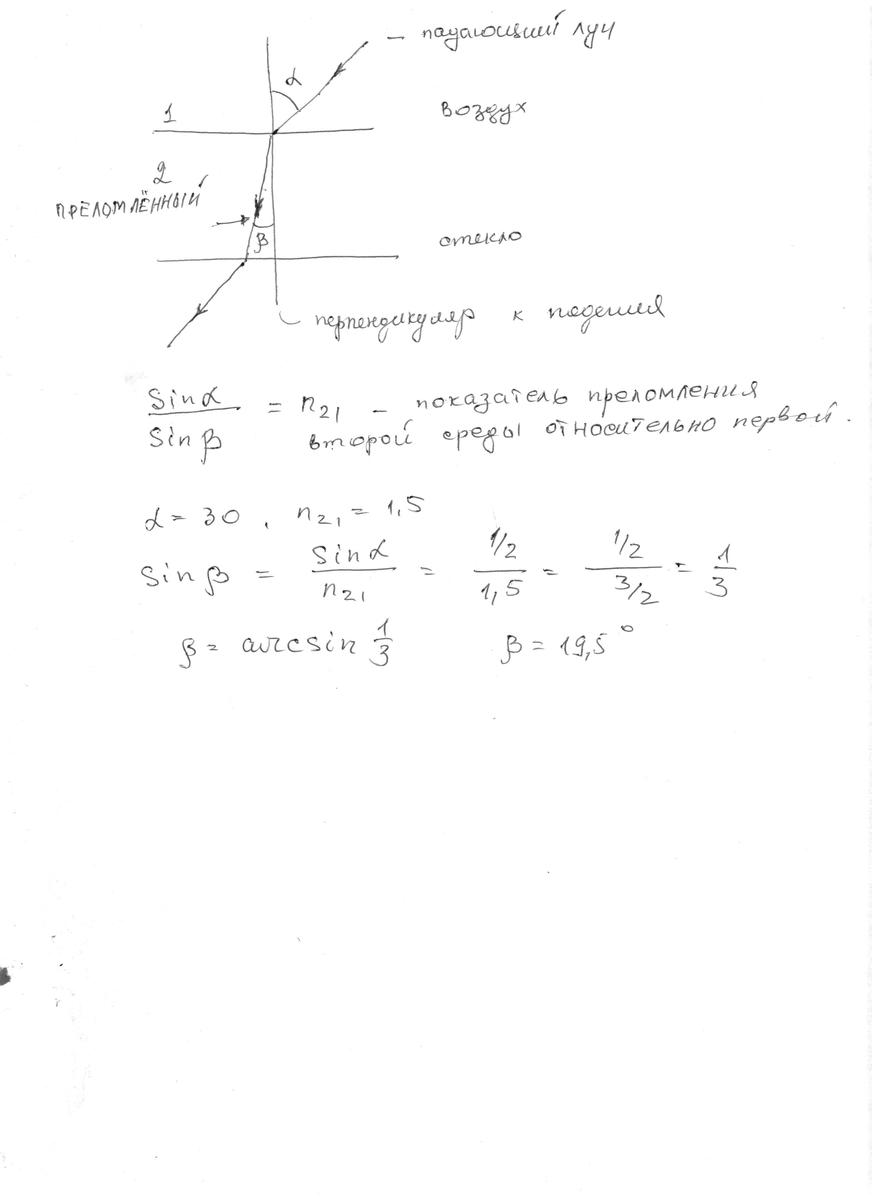 — падающий луч
α
1
воздух
2
преломлённый
β
стекло
перпендикуляр к
sin α / sin β = n₂₁ — показатель преломления
второй среды относительно первой.
α = 30, n₂₁ = 1,5
sin β = sin α / n₂₁ = 1/2 / 1,5 = 1/2 / 3/2 = 1/3
β = arcsin 1/3 β = 19,5°